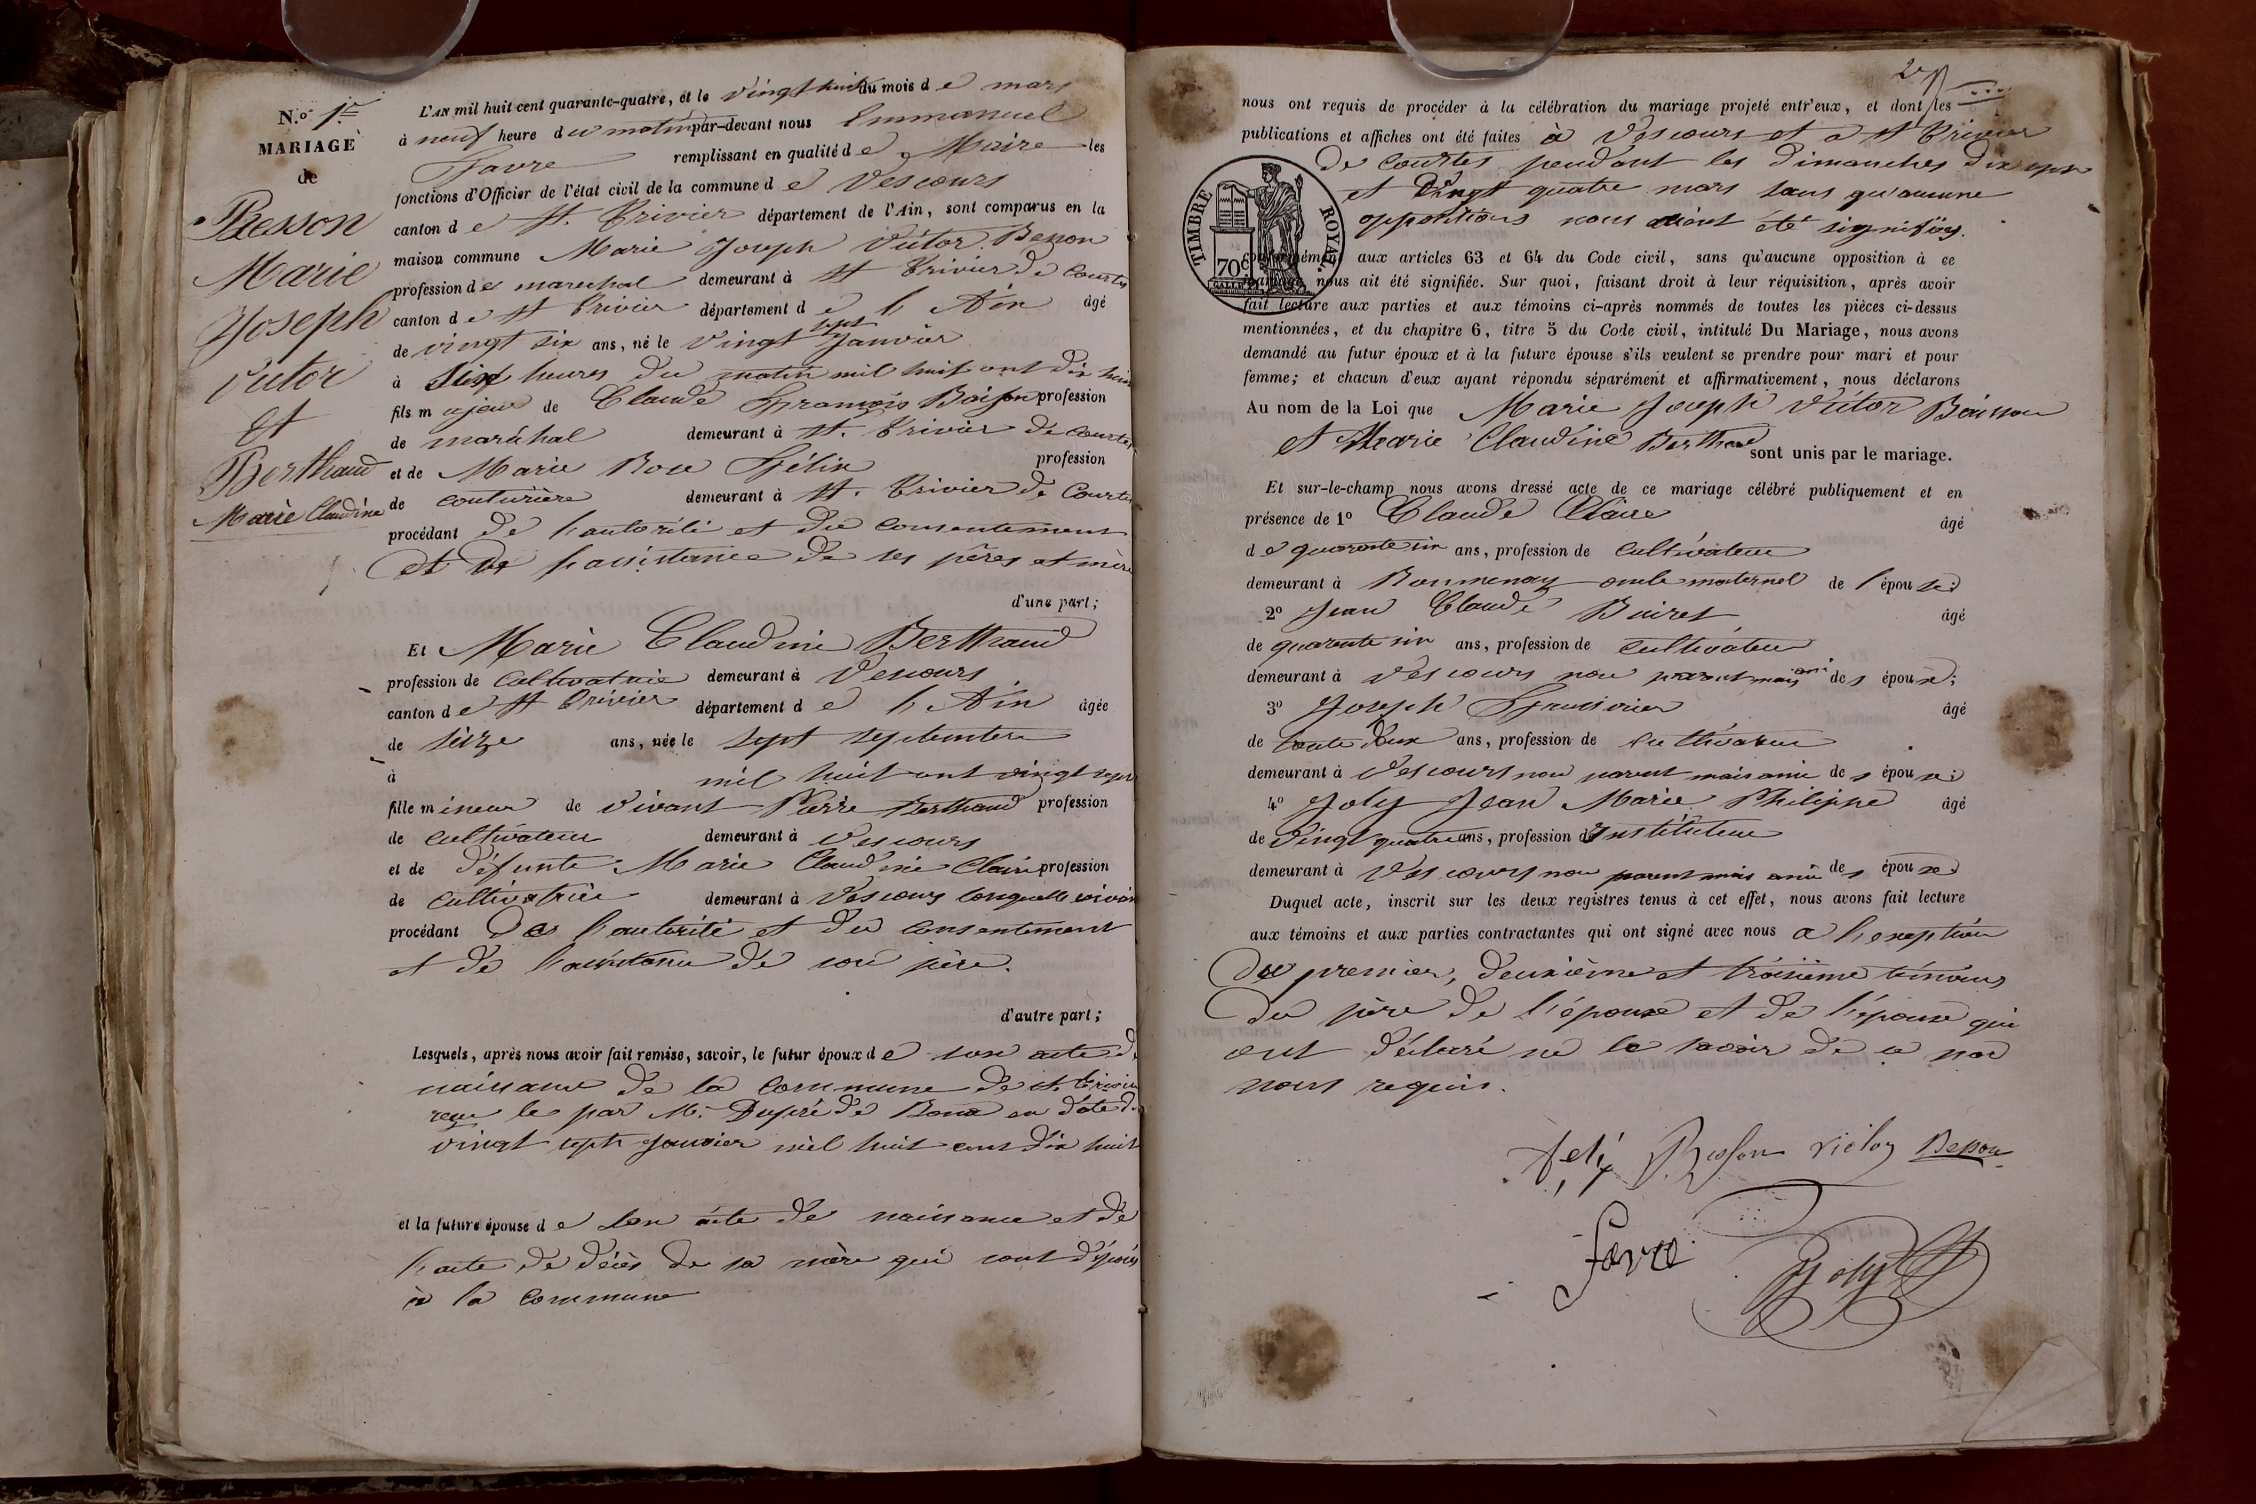 N.o 1er
MARIAGE
de
Besson
Marie
Joseph
Victor
Et
Berthaud
Marie Claudine
L'AN mil huit cent quarante-quatre, et le vingt huit du mois de mars
à neuf heure du matin par-devant nous Emmanuel
Favre remplissant en qualité de Maire les
fonctions d'Officier de l'état civil de la commune de Vescours
canton de St. Trivier département de l'Ain, sont comparus en la
maison commune Marie Joseph Victor Besson
profession de marechal demeurant à St Trivier de Courtes
canton de St Trivier département de l'Ain âgé
de vingt six ans, né le vingt sept Janvier
à six heures du matin mil huit cent dix huit
fils majeur de Claude François Besson profession
de maréchal demeurant à St. Trivier de Courtes
et de Marie Rose Félix profession
de couturière demeurant à St. Trivier de Courtes
procédant de l'autorité et du consentement
et de l'assistance de ses pères et mère
d'une part;
Et Marie Claudine Berthaud
profession de Cultivatrice demeurant à Vescours
canton de St Trivier département de l'Ain âgée
de seize ans, née le sept septembre
à mil huit cent vingt sept
fille mineur de vivant Pierre Berthaud profession
de cultivateur demeurant à Vescours
et de défunte Marie Claudine Clair profession
de Cultivatrice demeurant à Vescours lorsquelle vivait
procédant de l'autorité et du consentement
et de l'assistance de son père.
d'autre part;
Lesquels, après nous avoir fait remise, savoir, le futur époux de son acte de
naissance de la commune de St. Trivier
reçu le par M. Dupré de Bona en date du
vingt sept Janvier mil huit cent dix huit
et la future épouse de son acte de naissance et de
l'acte de décès de sa mère qui sont déposés
à la commune
nous ont requis de procéder à la célébration du mariage projeté entr'eux, et dont les
publications et affiches ont été faites à Vescours et a St Trivier
de Courtes pendant les dimanches dix sept
et vingt quatre mars sans qu'aucune
oppositions nous aient été signifiées.
TIMBRE ROYAL.
70c
conformément aux articles 63 et 64 du Code civil, sans qu'aucune opposition à ce
mariage nous ait été signifiée. Sur quoi, faisant droit à leur réquisition, après avoir
fait lecture aux parties et aux témoins ci-après nommés de toutes les pièces ci-dessus
mentionnées, et du chapitre 6, titre 5 du Code civil, intitulé Du Mariage, nous avons
demandé au futur époux et à la future épouse s'ils veulent se prendre pour mari et pour
femme; et chacun d'eux ayant répondu séparément et affirmativement, nous déclarons
Au nom de la Loi que Marie Joseph Victor Besson
et Marie Claudine Berthaud sont unis par le mariage.
Et sur-le-champ nous avons dressé acte de ce mariage célébré publiquement et en
présence de 1o Claude Claire âgé
de quarante six ans, profession de Cultivateur
demeurant à Romenay oncle maternel de l'épouse;
2o Jean Claude Buiret âgé
de quarante six ans, profession de cultivateur
demeurant à Vescours non parent mais ami des épouse;
3o Joseph âgé
de trente deux ans, profession de cultivateur
demeurant à Vescours non parent mais ami des épouse;
4o Joly Jean Marie Philippe âgé
de vingt quatre ans, profession d'Instituteur
demeurant à Vescours non parent mais ami des épouse;
Duquel acte, inscrit sur les deux registres tenus à cet effet, nous avons fait lecture
aux témoins et aux parties contractantes qui ont signé avec nous a l'exception
du premier, deuxième et troisième témoins
du père de l'épouse et de l'épouse qui
ont déclaré ne le savoir de ce par
nous requis.
felix Besson victor Besson
favre
Joly